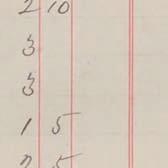 2 10
3
3
1 5
2 5